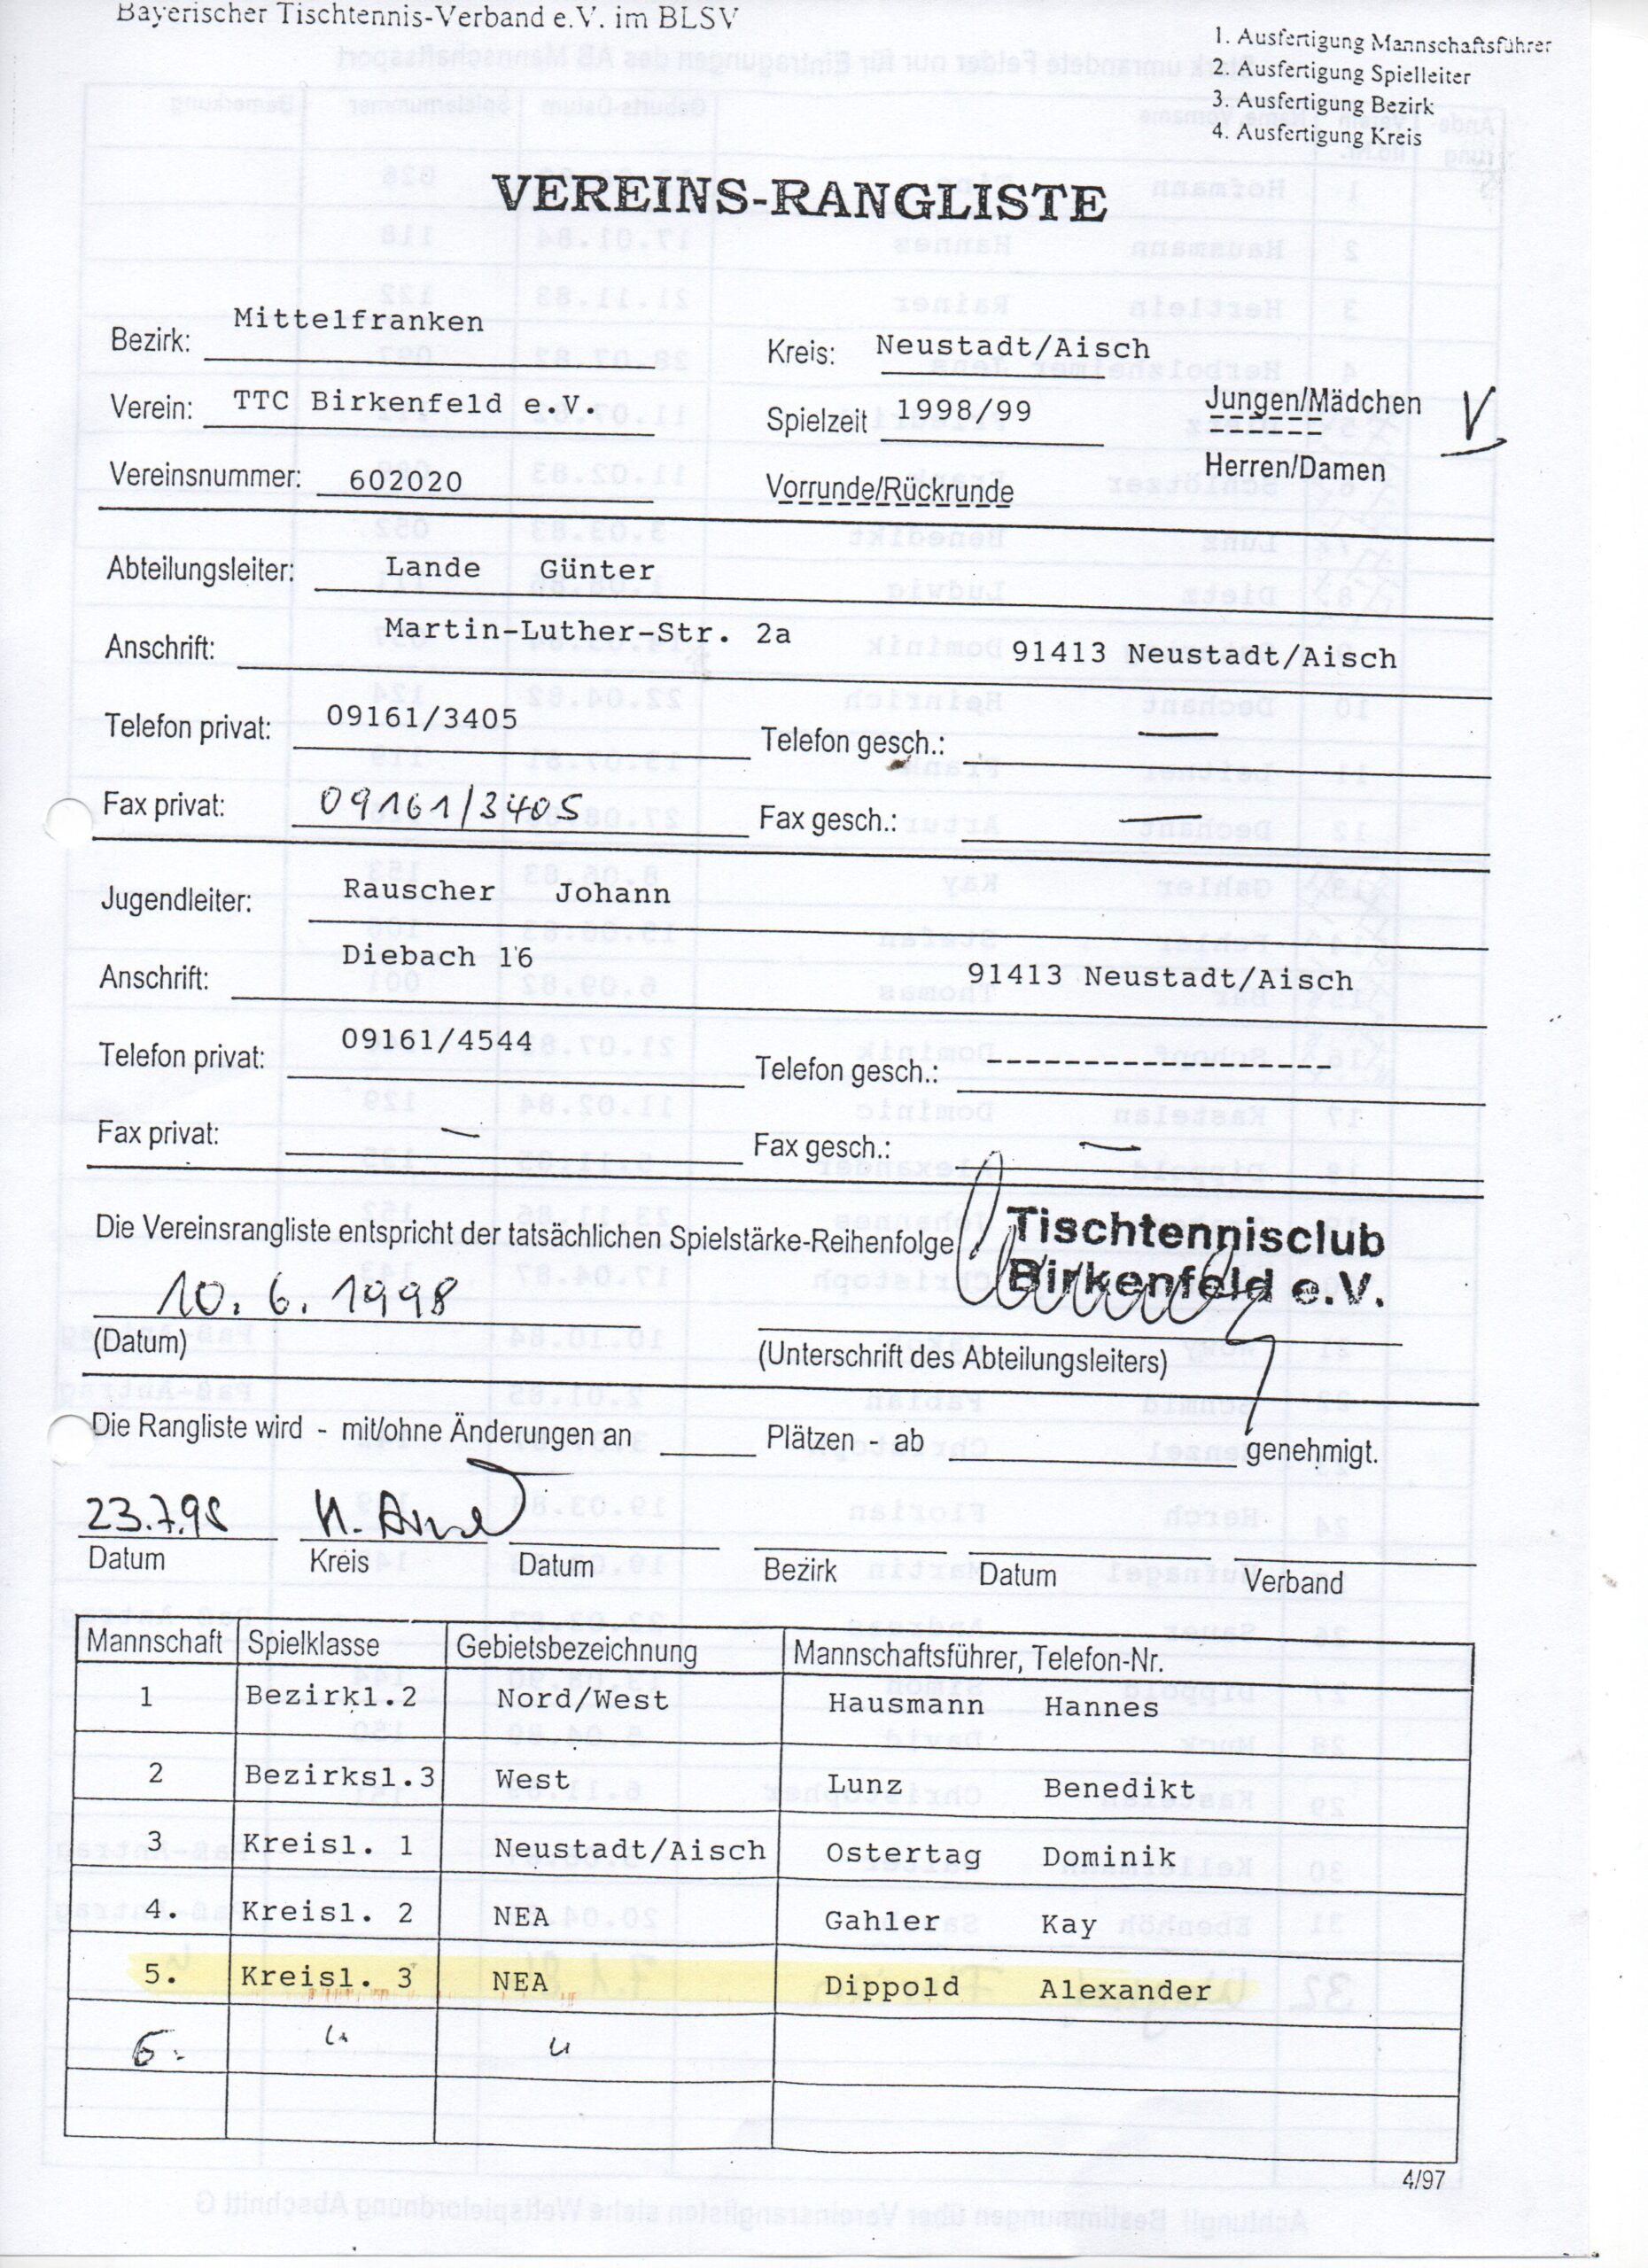 Bayerischer Tischtennis-Verband e.V. im BLSV
1. Ausfertigung Mannschaftsführer
2. Ausfertigung Spielleiter
3. Ausfertigung Bezirk
4. Ausfertigung Kreis
VEREINS-RANGLISTE
Bezirk: Mittelfranken Kreis: Neustadt/Aisch
Verein: TTC Birkenfeld e.V. Spielzeit 1998/99 Jungen/Mädchen V
Herren/Damen
Vereinsnummer: 602020 Vorrunde/Rückrunde
Abteilungsleiter: Lande Günter
Anschrift: Martin-Luther-Str. 2a 91413 Neustadt/Aisch
Telefon privat: 09161/3405 Telefon gesch.: —
Fax privat: 09161/3405 Fax gesch.: —
Jugendleiter: Rauscher Johann
Anschrift: Diebach 16 91413 Neustadt/Aisch
Telefon privat: 09161/4544 Telefon gesch.: ------------------
Fax privat: — Fax gesch.: —
Die Vereinsrangliste entspricht der tatsächlichen Spielstärke-Reihenfolge
Tischtennisclub
Birkenfeld e.V.
10. 6. 1998
(Datum) (Unterschrift des Abteilungsleiters)
Die Rangliste wird - mit/ohne Änderungen an Plätzen - ab genehmigt.
23.7.98
Datum Kreis Datum Bezirk Datum Verband
Mannschaft Spielklasse Gebietsbezeichnung Mannschaftsführer, Telefon-Nr.
1 Bezirkl.2 Nord/West Hausmann Hannes
2 Bezirksl.3 West Lunz Benedikt
3 Kreisl. 1 Neustadt/Aisch Ostertag Dominik
4. Kreisl. 2 NEA Gahler Kay
5. Kreisl. 3 NEA Dippold Alexander
6. " "
4/97